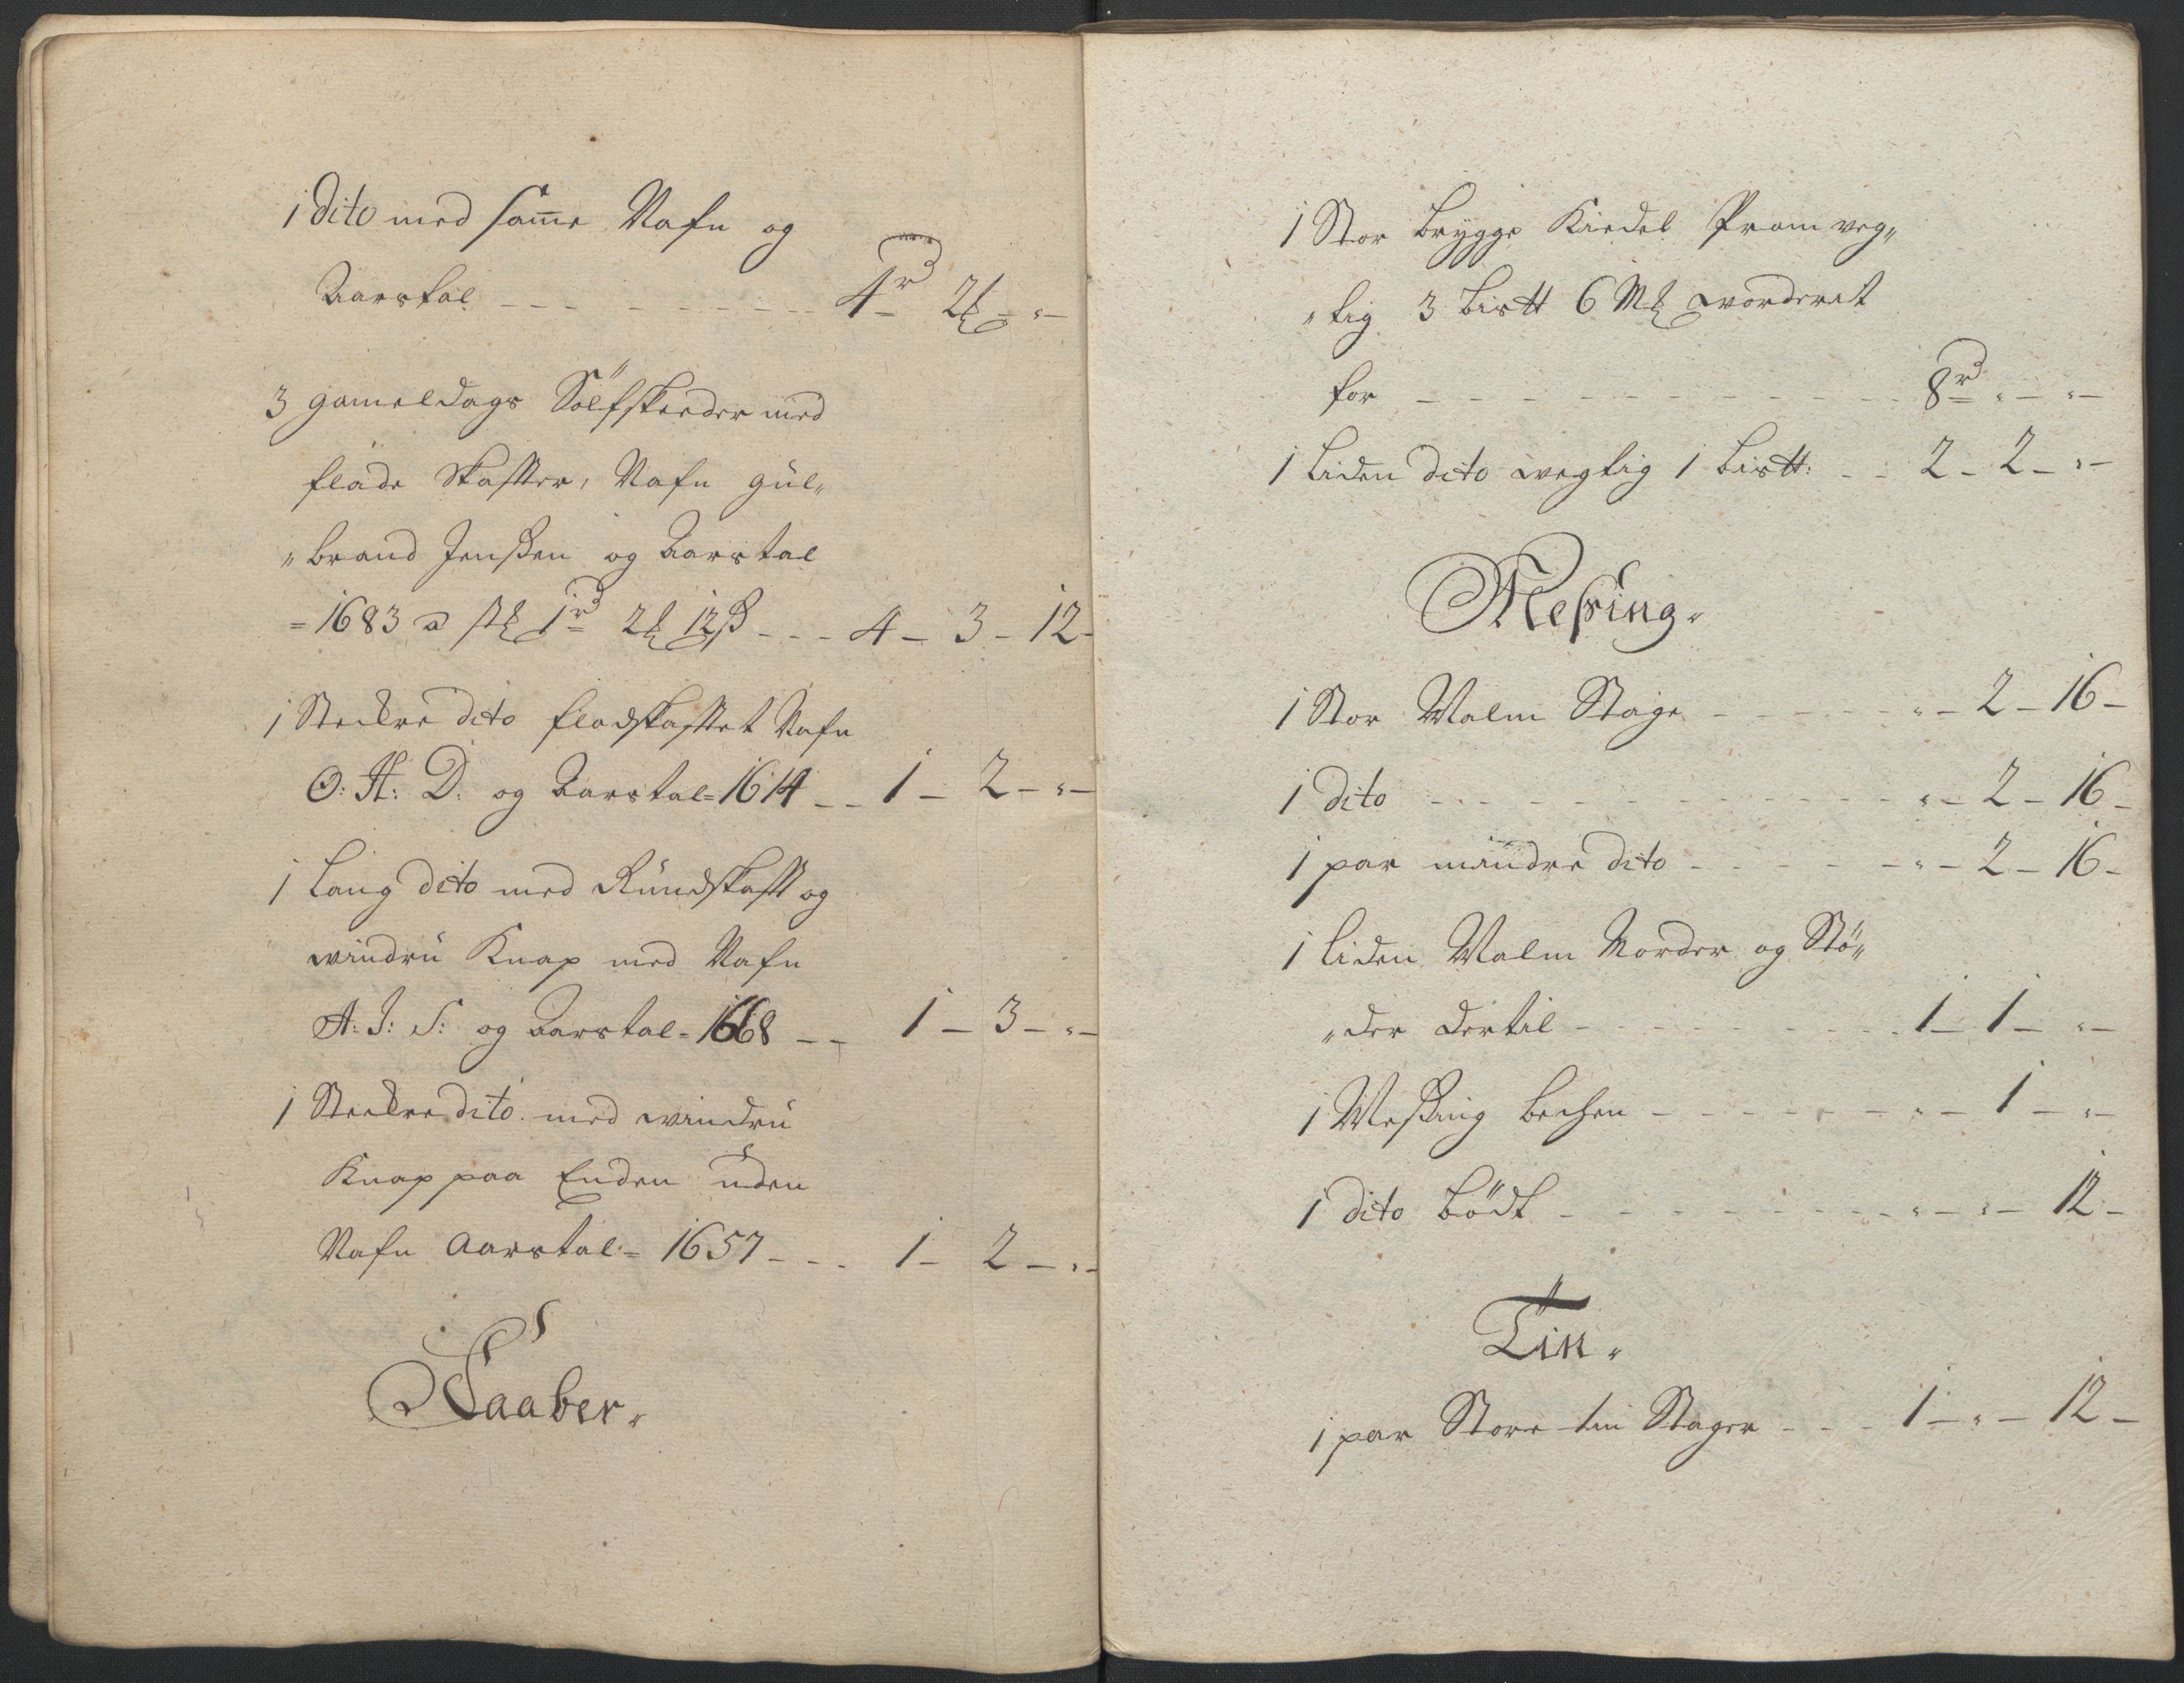 1 Dito med samme Nafn og
Aarstal - - - 4 rd 2 mk - " -
3 gameldags Sölfskeeder med
flade Skaffter, Nafn Gul„
„brand Jenssen og Aarstal
= 1683 a st 1 rd 2 mk 12 ß - - - 4 - 3 - 12 -
1 Støckre dito fladskafftet Nafn
O: H: D: og Aarstal = 1614 - - 1 - 2 - " -
1 Lang dito med Rundskafft og
vindru Knap med Nafn
A: J: S: og Aarstal = 1668 - - 1 - 3 - " -
1 dito med vindru
Knap paa Enden uden
Nafn Aarstal = 1657 - - - 1 - 2 - " -
Kaaber.
1 Stor brygge Kiedel veg„
„tig 3 Bis℔ 6 Mk vorderet
for - - - 8 rd " - " -
1 Liden dito vegtig 1 Bis℔: - - 2 - 2 - " -
Messing.
1 Stor Malm Stage - - - " - 2 - 16 -
1 dito - - - " - 2 - 16 -
1 par mindre dito - - - " - 2 - 16 -
1 liden Malm Morder og Stö„
„der dertil - - - 1 - 1 - " -
1 Messing Bechen - - - " - 1 - " -
1 dito - - - " - " - 12 -
Tin.
1 par Store tin Stager - - - 1 - " - 12 -